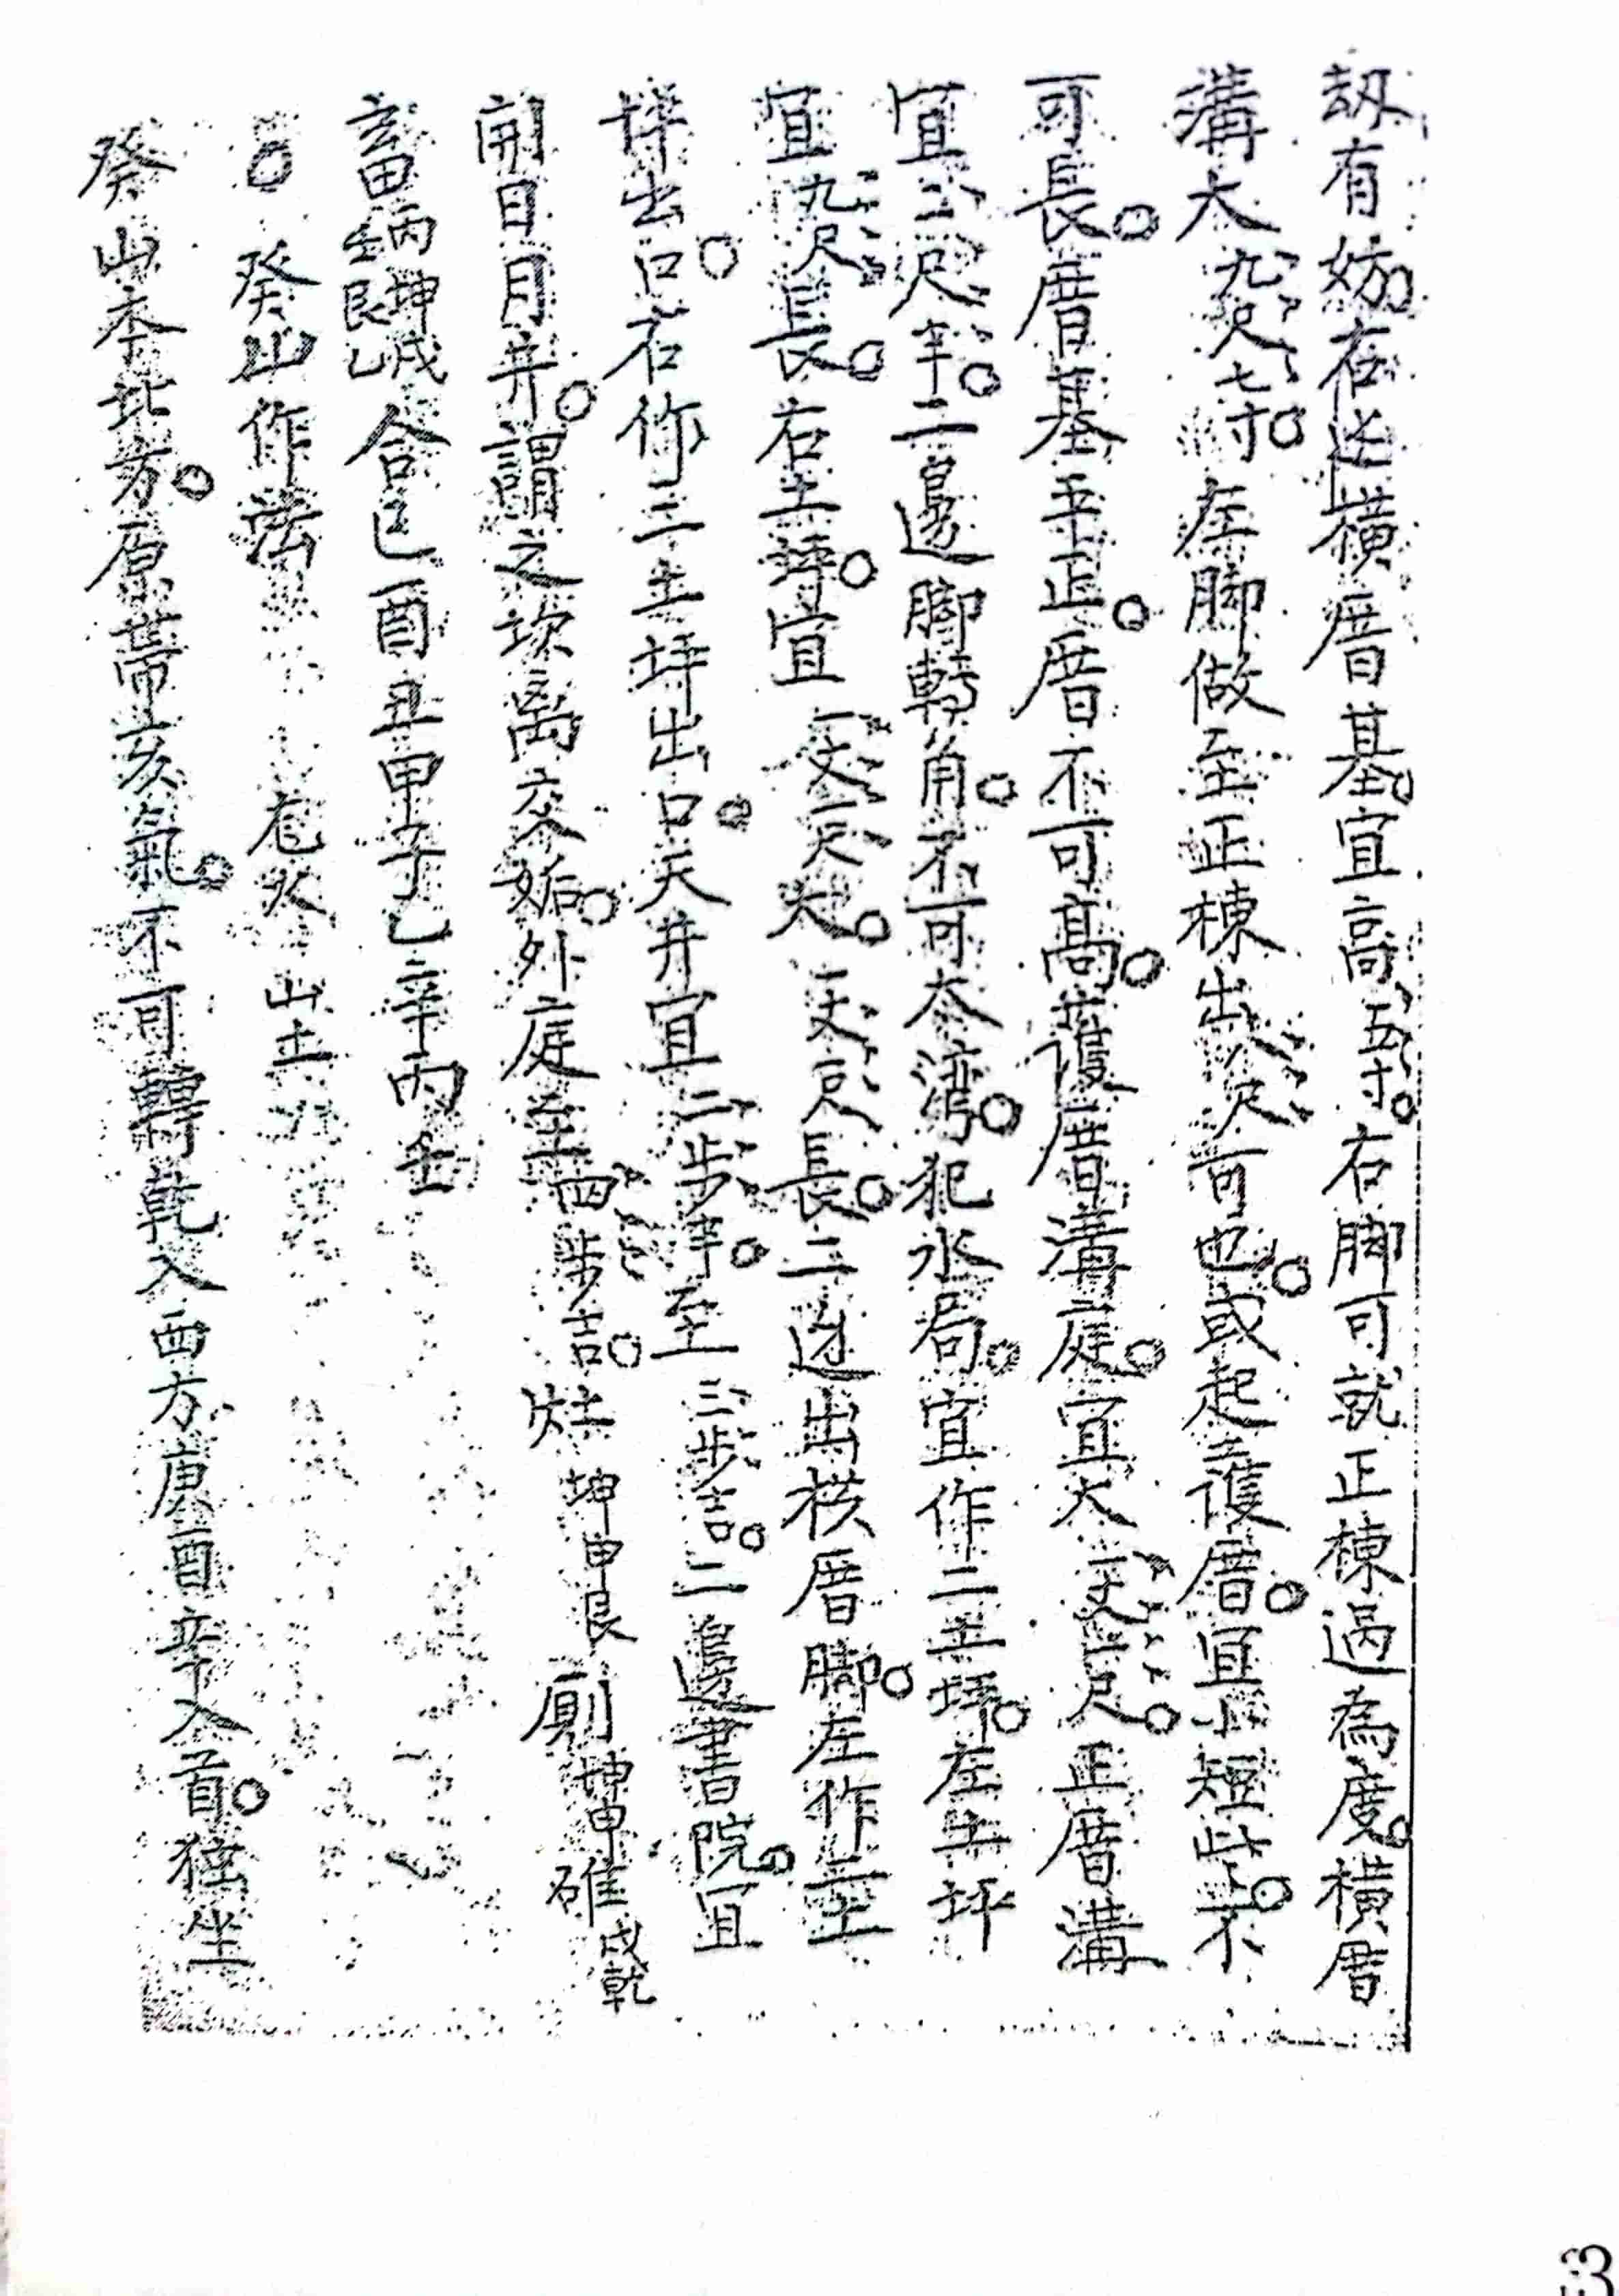 刼有妨。在边橫厝基。宜高五寸。右脚可就正棟過為度。橫厝
溝大九尺七寸。左脚做至正棟出八尺可也。或起護厝。宜小短些。不
可長。厝基平正。厝不可高。護厝溝庭。宜大一丈二尺。正厝溝
宜三尺半。二邊脚轉角。不可太湾。犯水局。宜作二土坪。左土坪
宜九尺長。右土埕。宜一丈一尺大。一丈一尺長。二边出橫厝脚。左作二土
坪出。口右作三土坪出口。天井宜二步半。至三步吉。二邊書院。宜
開日月井。謂之坎离交姤。外庭至四步吉。灶坤申艮厠坤申碓戌乾
畜丙坤戌壬艮乙合巳酉丑甲子乙辛丙壬
。癸山作法 危火 山土
癸山本北方。原帶亥氣。不可轉乾入西方庚酉辛入首。独坐
53